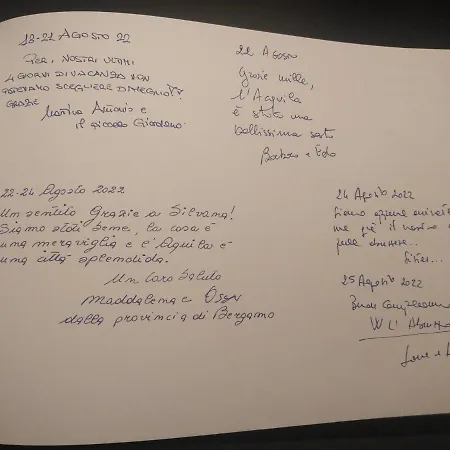 18-21 AGOSTO 22
PER I NOSTRI ULTIMI
4 GIORNI DI VACANZA NON
POTEVAMO SCEGLIERE DI MEGLIO!!
GRAZIE
Martina Antonio e
il piccolo Giordano
21 Agosto
Grazie mille,
L'Aquila
è stata una
bellissima
Barbara e
22-24 Agosto 2022
Un sentito Grazie a Silvana!
Siamo stati bene, la casa è
una meraviglia e l'Aquila è
una città splendida.
Un caro saluto
Maddalena e
dalla provincia di Bergamo
24 Agosto 2022
Siamo appena
ma già il nostro
25 Agosto 2022
Buon
W L'